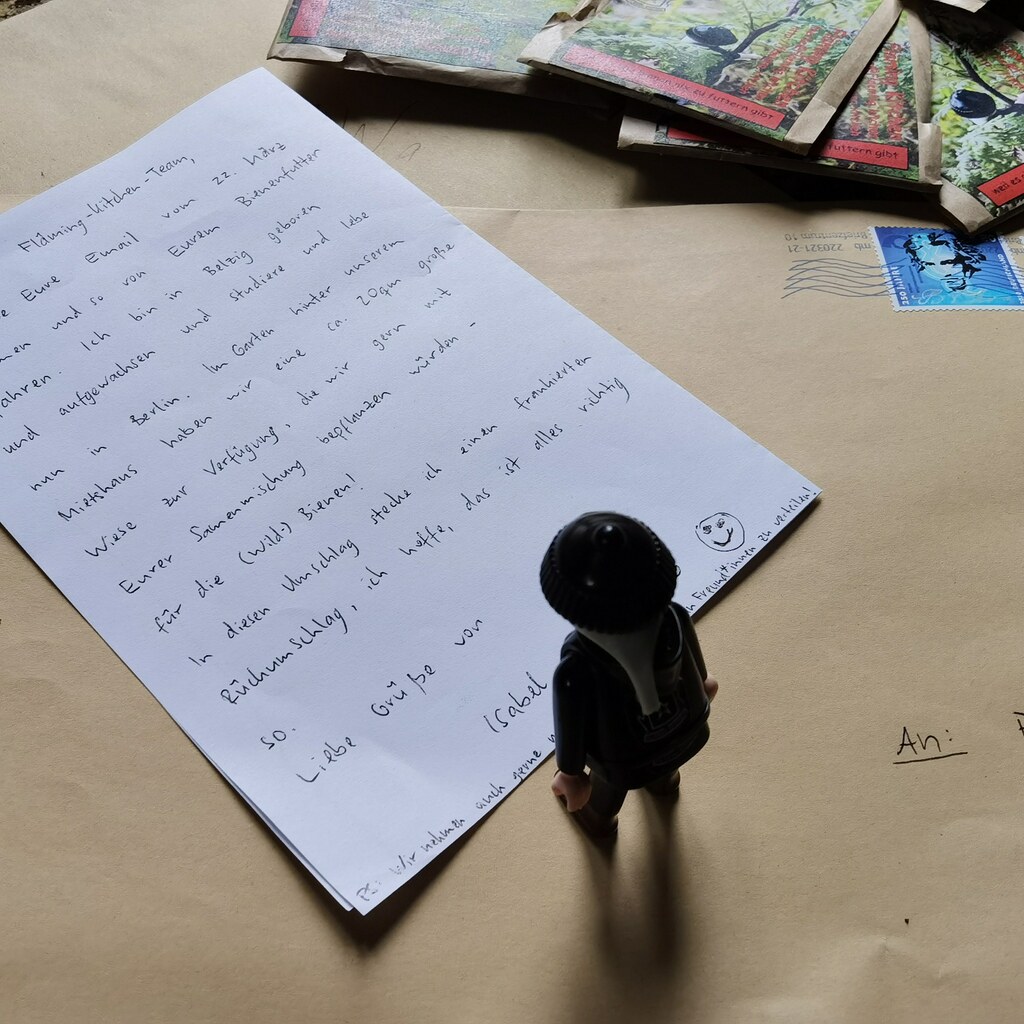 Fläming-Kitchen-Team,
Eure Email vom 22. März
und so von Eurem Bienenfutter
fahren. Ich bin in Belzig geboren
und aufgewachsen und studiere und lebe
nun in Berlin. Im Garten hinter unserem
Mietshaus haben wir eine ca. 20qm große
Wiese zur Verfügung, die wir gern mit
Eurer Samenmischung bepflanzen würden -
für die (Wild-) Bienen!
In diesen Umschlag stecke ich einen frankierten
Rückumschlag, ich hoffe, das ist alles richtig
so.
Liebe Grüße von
Isabel
PS: Wir nehmen auch gerne
Freund*innen zu verteilen!
zu futtern gibt
futtern gibt
weil es
Briefzentrum 10
220321-21
An: